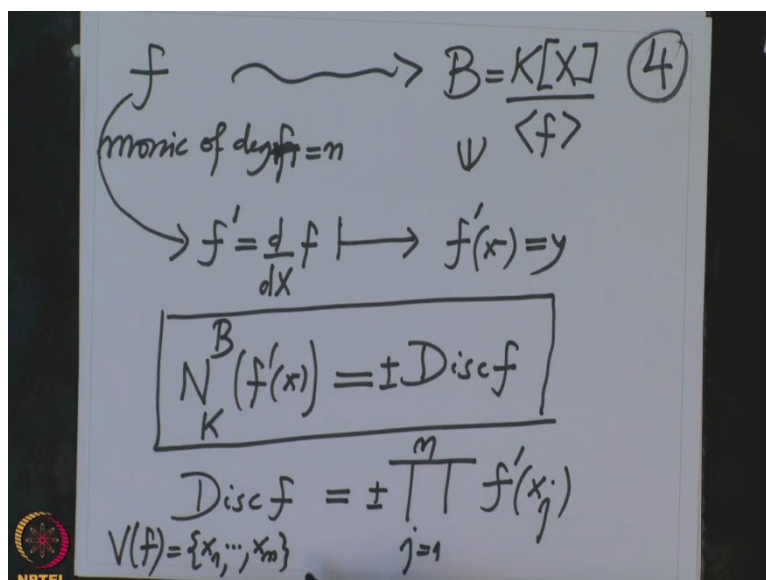 f ⟿ B = K[X] / <f> ④
monic of deg f = n
f' = d/dX f ⟼ f'(x) = y
N^B_K (f'(x)) = ± Disc f
Disc f = ± ∏_{j=1}^{n} f'(x_j)
V(f) = {x_1, ..., x_n}
NPTEL